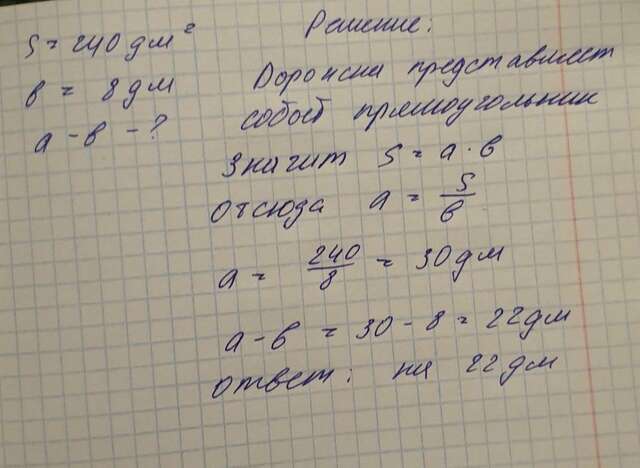 S = 240 дм²
в = 8 дм
а - в - ?
Решение:
Дорожка представляет
собой прямоугольник
Значит S = а · в
отсюда а = S/в
а = 240/8 = 30 дм
а - в = 30 - 8 = 22 дм
ответ: на 22 дм